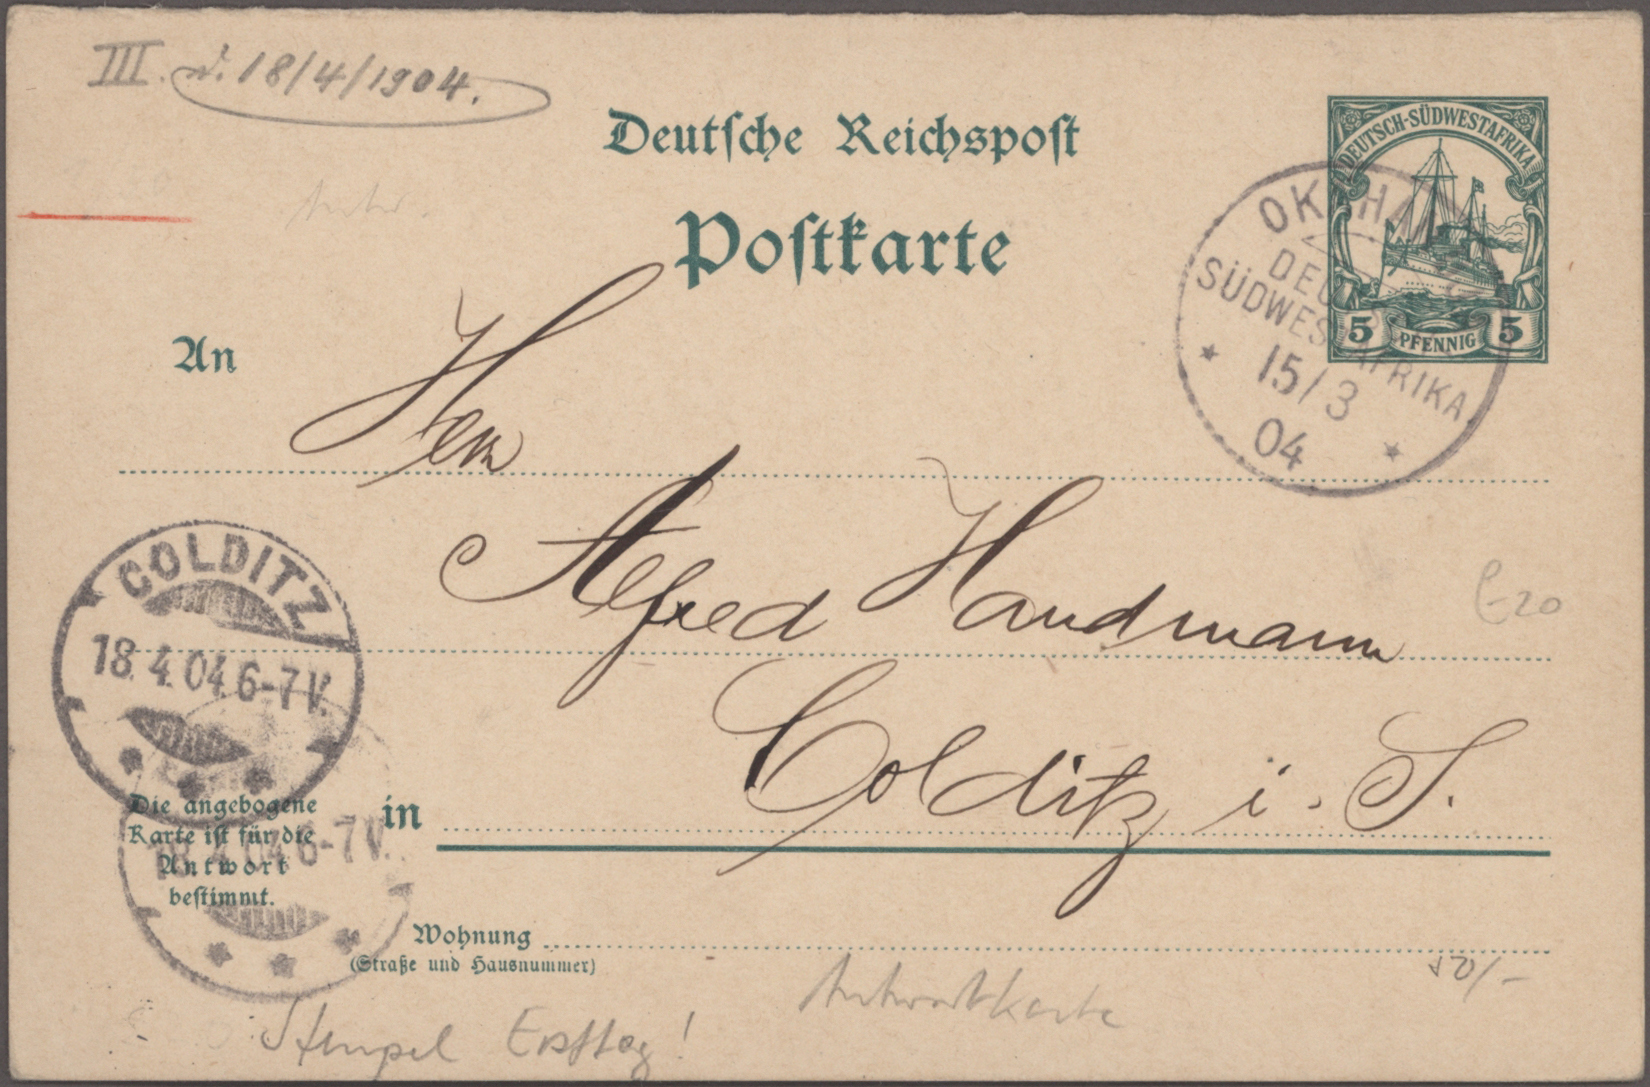 III. d. 18/4/1904.
Deutsche Reichspost
Postkarte
DEUTSCH-SÜDWESTAFRIKA
5 PFENNIG 5
DEU
SÜDWESTAFRIKA
15/3
04
An
Herrn
Alfred Handmann
in Colditz i. S.
COLDITZ
18. 4. 04. 6-7 V.
6-7 V.
Die angebogene
Karte ist für die
Antwort
bestimmt.
Wohnung
(Straße und Hausnummer)
Antwortkarte
Stempel Ersttag!